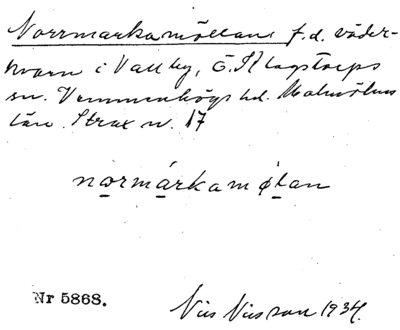 Norrmarkamöllan f.d. väder-
kvarn i Vallby, Ö. Klagstorps
sn. Vemmenhögs hd. Malmöhus
län. Strax n. 17
normárkamølan
Nr 5868.
Nils Nilsson 1934.